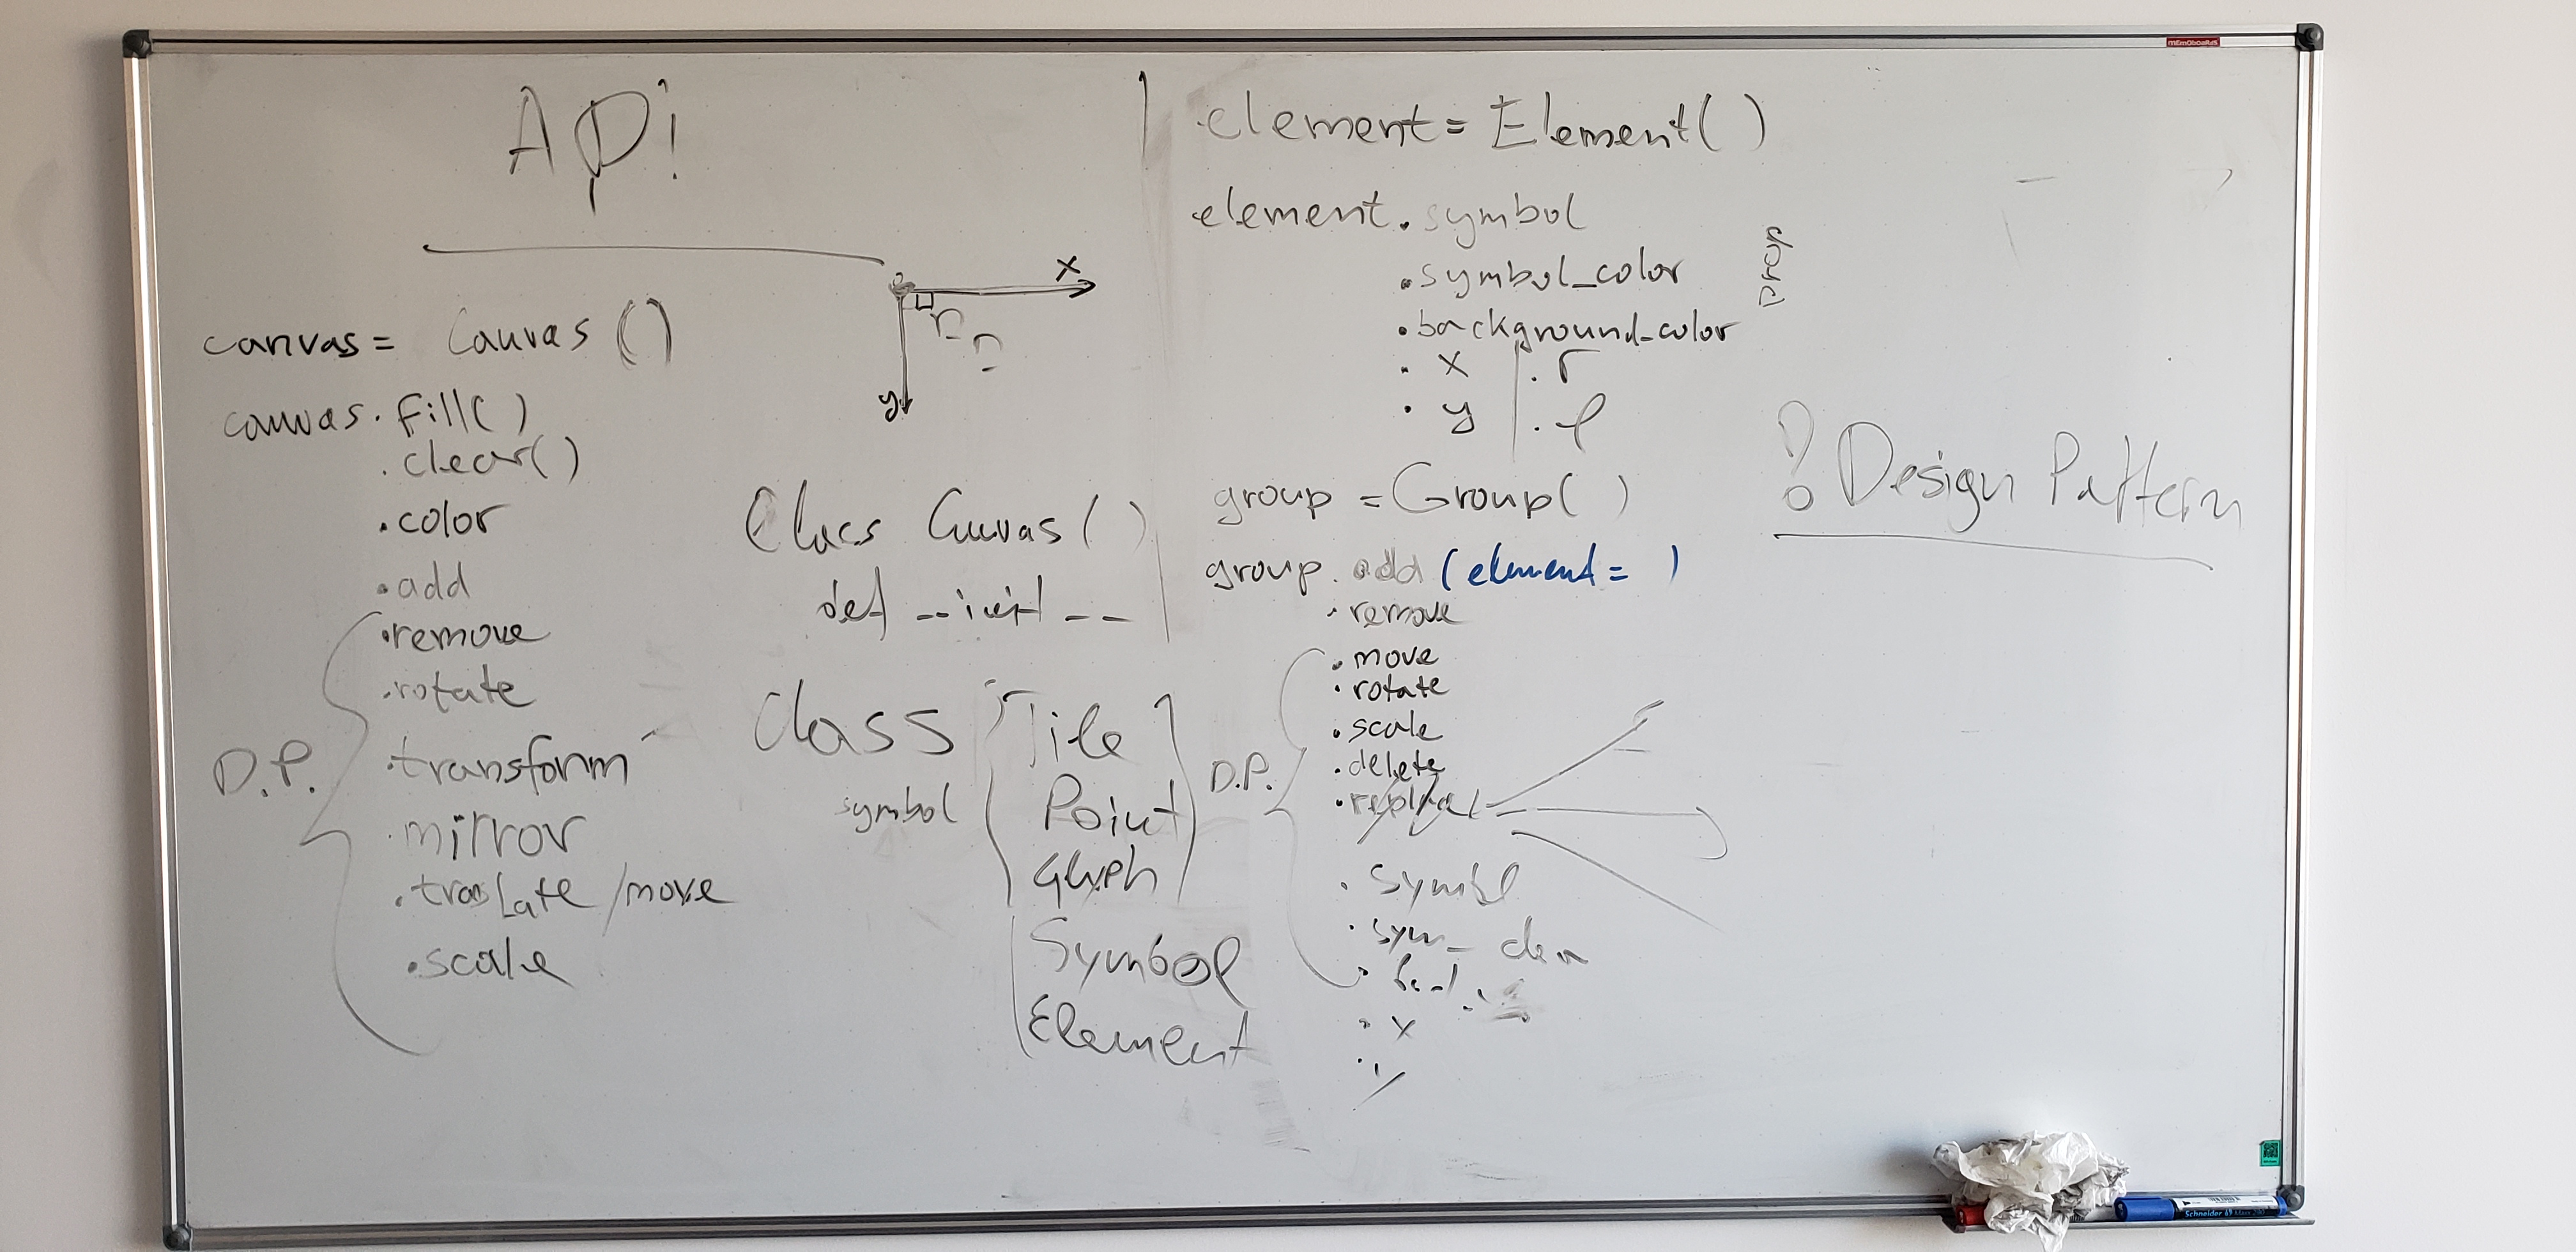 API
x
y
canvas = Canvas ()
canvas. fill()
.clear()
.color
.add
.remove
.rotate
.transform
.mirror
.traslate /move
.scale
D.P.
Class Canvas ()
def __init__
class
symbol
Tile
Point
Glyph
Symbol
Element
element = Element()
element. symbol
.symbol_color
.background_color
. x . r
. y . φ
prop
group = Group()
group. add (element = )
.remove
.move
.rotate
.scale
.delete
D.P.
. x
. y
? Design Pattern
memoboards
Schneider